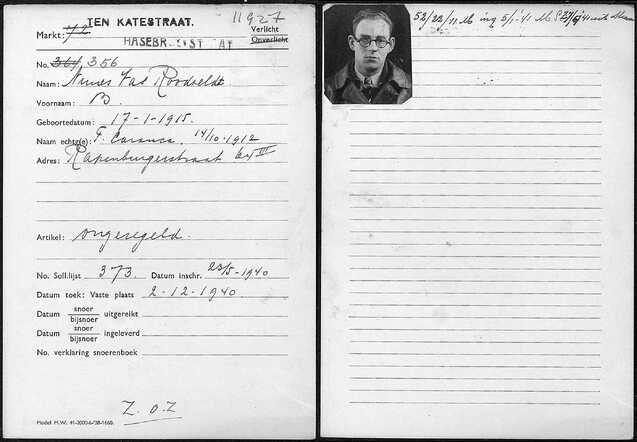 11927
TEN KATESTRAAT.
Markt: 72 Verlicht
HASEBR STRAAT Onverlicht
No. 361/ 356
Naam: Nunes Vas
Voornaam: B.
Geboortedatum: 17-1-1915.
Naam echtg(e): F. 14/10-1912
Adres: Rapenburgerstraat III
Artikel: ongeregeld.
No. Soll.lijst 373. Datum inschr. 23/5-1940
Datum toek: Vaste plaats 2-12-1940
Datum snoer/bijsnoer uitgereikt
Datum snoer/bijsnoer ingeleverd
No. verklaring snoerenboek
Z.O.Z
52/22/11 M ing 5/1-'41 M